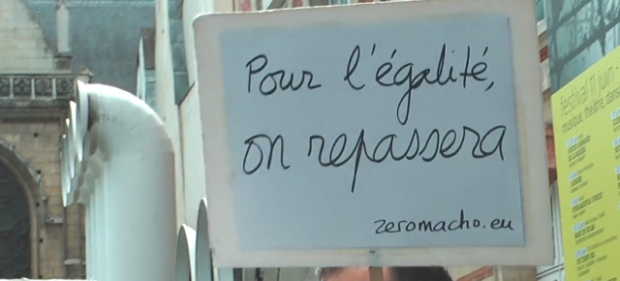 Pour l'égalité,
on repassera
zeromacho.eu
festival 11 juin
musique, théâtre, danse